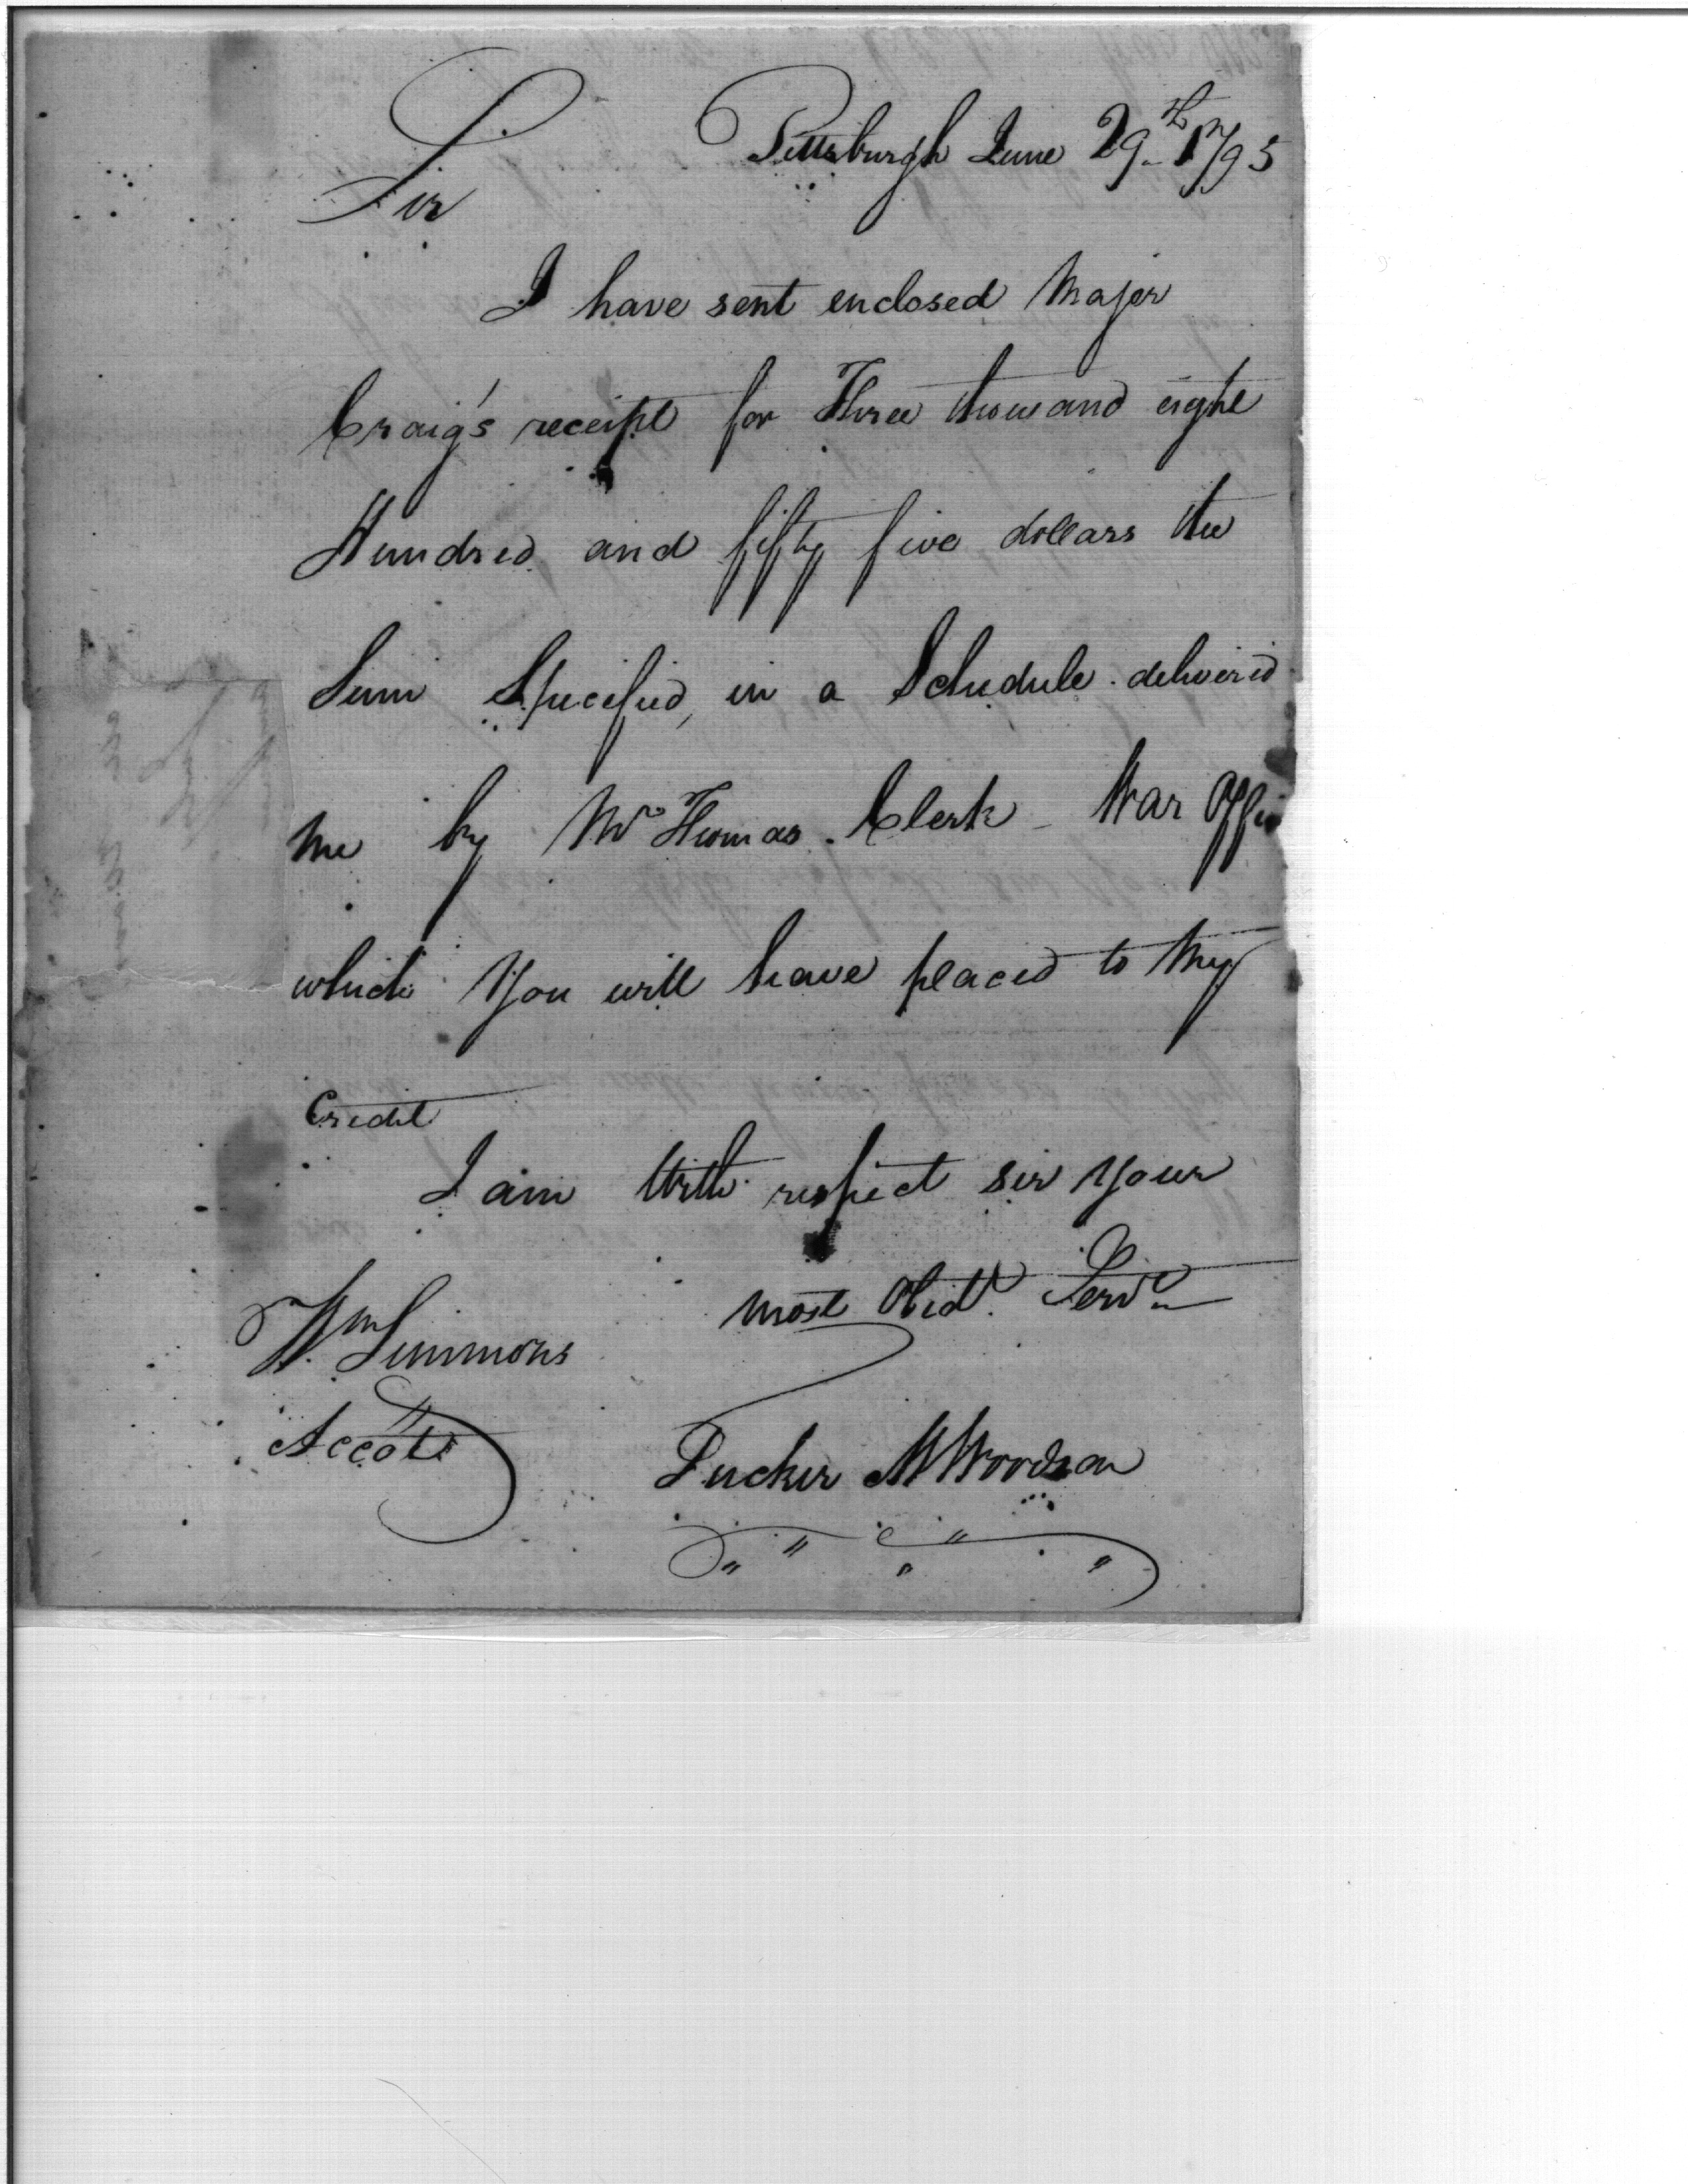 Pittsburgh June 29th 1795
Sir
I have sent enclosed Major
Craig's receipt for Three thousand eight
Hundred and fifty five dollars the
Sum Specified, in a Schedule delivered
me by Mr Thomas Clerk War Offi
which You will have placed to My
Credit
I am With respect sir Your
most Obedt Servt
Wm Simmons
Accot
Tucker M Woodson